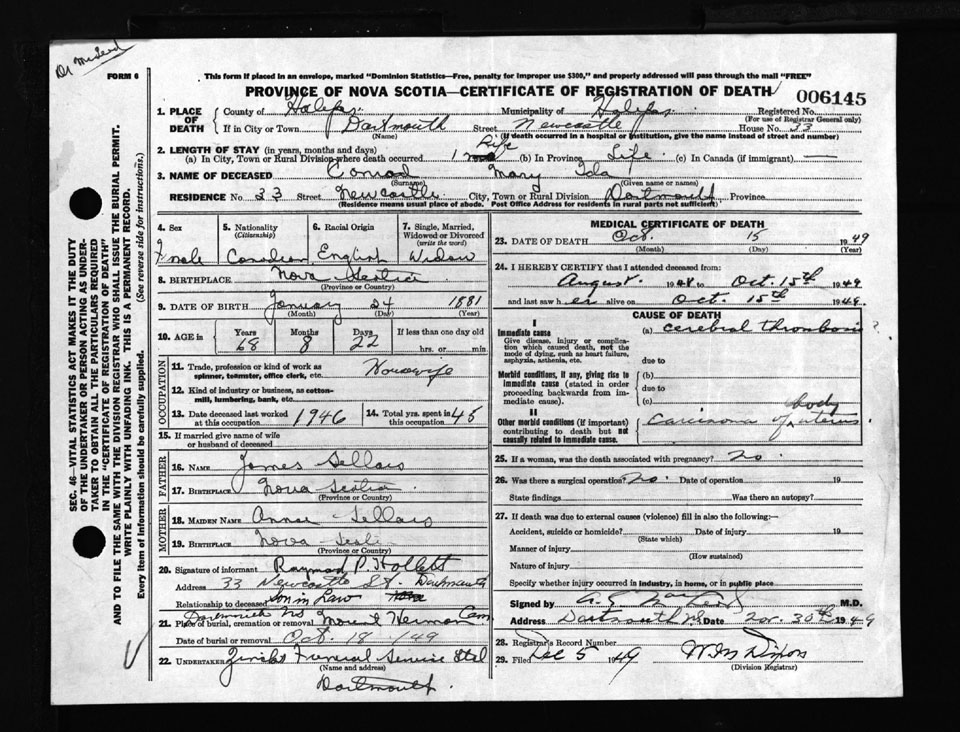 FORM 6
This form if placed in an envelope, marked "Dominion Statistics—Free, penalty for improper use $300," and properly addressed will pass through the mail "FREE"
PROVINCE OF NOVA SCOTIA—CERTIFICATE OF REGISTRATION OF DEATH
006145
SEC. 46—VITAL STATISTICS ACT MAKES IT THE DUTY
OF THE UNDERTAKER OR PERSON ACTING AS UNDER-
TAKER TO OBTAIN ALL THE PARTICULARS REQUIRED
IN THE "CERTIFICATE OF REGISTRATION OF DEATH"
AND TO FILE THE SAME WITH THE DIVISION REGISTRAR WHO SHALL ISSUE THE BURIAL PERMIT.
WRITE PLAINLY WITH UNFADING INK. THIS IS A PERMANENT RECORD.
Every item of information should be carefully supplied. (See reverse side for instructions.)
1. PLACE OF DEATH County of Halifax Municipality of Halifax Registered No.
(For use of Registrar General only)
If in City or Town Dartmouth Street Newcastle House No. 33
(Name) (If death occurred in a hospital or institution, give the name instead of street and number)
2. LENGTH OF STAY (in years, months and days)
(a) In City, Town or Rural Division where death occurred Life (b) In Province Life (c) In Canada (if immigrant) —
3. NAME OF DECEASED Conrad Mary Ida
(Surname) (Given name or names)
RESIDENCE No. 33 Street Newcastle City, Town or Rural Division Dartmouth Province
(Residence means usual place of abode. Post Office Address for residents in rural parts not sufficient)
4. Sex 5. Nationality (Citizenship) 6. Racial Origin 7. Single, Married, Widowed or Divorced (write the word)
Female Canadian English Widow
8. BIRTHPLACE Nova Scotia
(Province or Country)
9. DATE OF BIRTH January 24 1881
(Month) (Day) (Year)
10. AGE in Years Months Days If less than one day old
68 8 22 hrs. or min.
OCCUPATION
11. Trade, profession or kind of work as spinner, teamster, office clerk, etc. Housewife
12. Kind of industry or business, as cotton-mill, lumbering, bank, etc.
13. Date deceased last worked at this occupation 1946 14. Total yrs. spent in 45
15. If married give name of wife or husband of deceased
FATHER
16. NAME James Sellars
17. BIRTHPLACE Nova Scotia
(Province or Country)
MOTHER
18. MAIDEN NAME Annie Sellars
19. BIRTHPLACE Nova Scotia
(Province or Country)
20. Signature of informant Raymond P. Hollett
Address 33 Newcastle St. Dartmouth
Relationship to deceased Son in Law
Dartmouth NS
21. Place of burial, cremation or removal Mount Hermon Cem
Date of burial or removal Oct 18 /49
22. UNDERTAKER Funeral Service Ltd
(Name and address)
Dartmouth.
MEDICAL CERTIFICATE OF DEATH
23. DATE OF DEATH Oct. 15 1949
(Month) (Day)
24. I HEREBY CERTIFY that I attended deceased from:
August 1948 to Oct. 15th 1949
and last saw her alive on Oct. 15th 1949.
CAUSE OF DEATH
I
Immediate cause (a) cerebral thrombosis ?
Give disease, injury or complication which caused death, not the mode of dying, such as heart failure, asphyxia, asthenia, etc.
due to
Morbid conditions, if any, giving rise to immediate cause (stated in order proceeding backwards from immediate cause).
(b)
due to
(c)
II
Other morbid conditions (if important) contributing to death but not causally related to immediate cause.
Carcinoma of body uterus
25. If a woman, was the death associated with pregnancy? no.
26. Was there a surgical operation? no. Date of operation 19
State findings Was there an autopsy?
27. If death was due to external causes (violence) fill in also the following:—
Accident, suicide or homicide? Date of injury 19
(State which)
Manner of injury
(How sustained)
Nature of injury
Specify whether injury occurred in industry, in home, or in public place
Signed by M.D.
Address Dartmouth NS Date Nov. 30th 1949
28. Registrar's Record Number
29. Filed Dec 5 1949 Dixon
(Division Registrar)